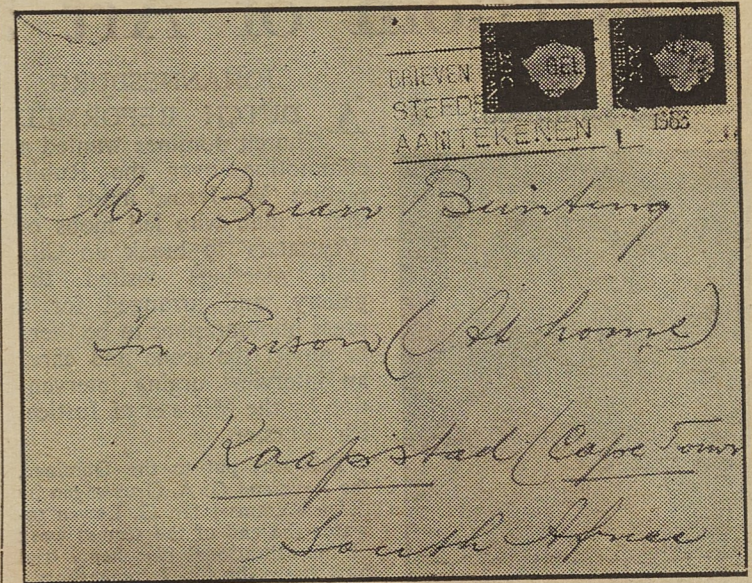 NEDERLAND
20C
NEDERLAND
20C
BRIEVEN
STEEDS
AANTEKENEN
1963
Mr. Brian Bunting
In Prison (At home)
Kaapstad (Cape Town
South Africa